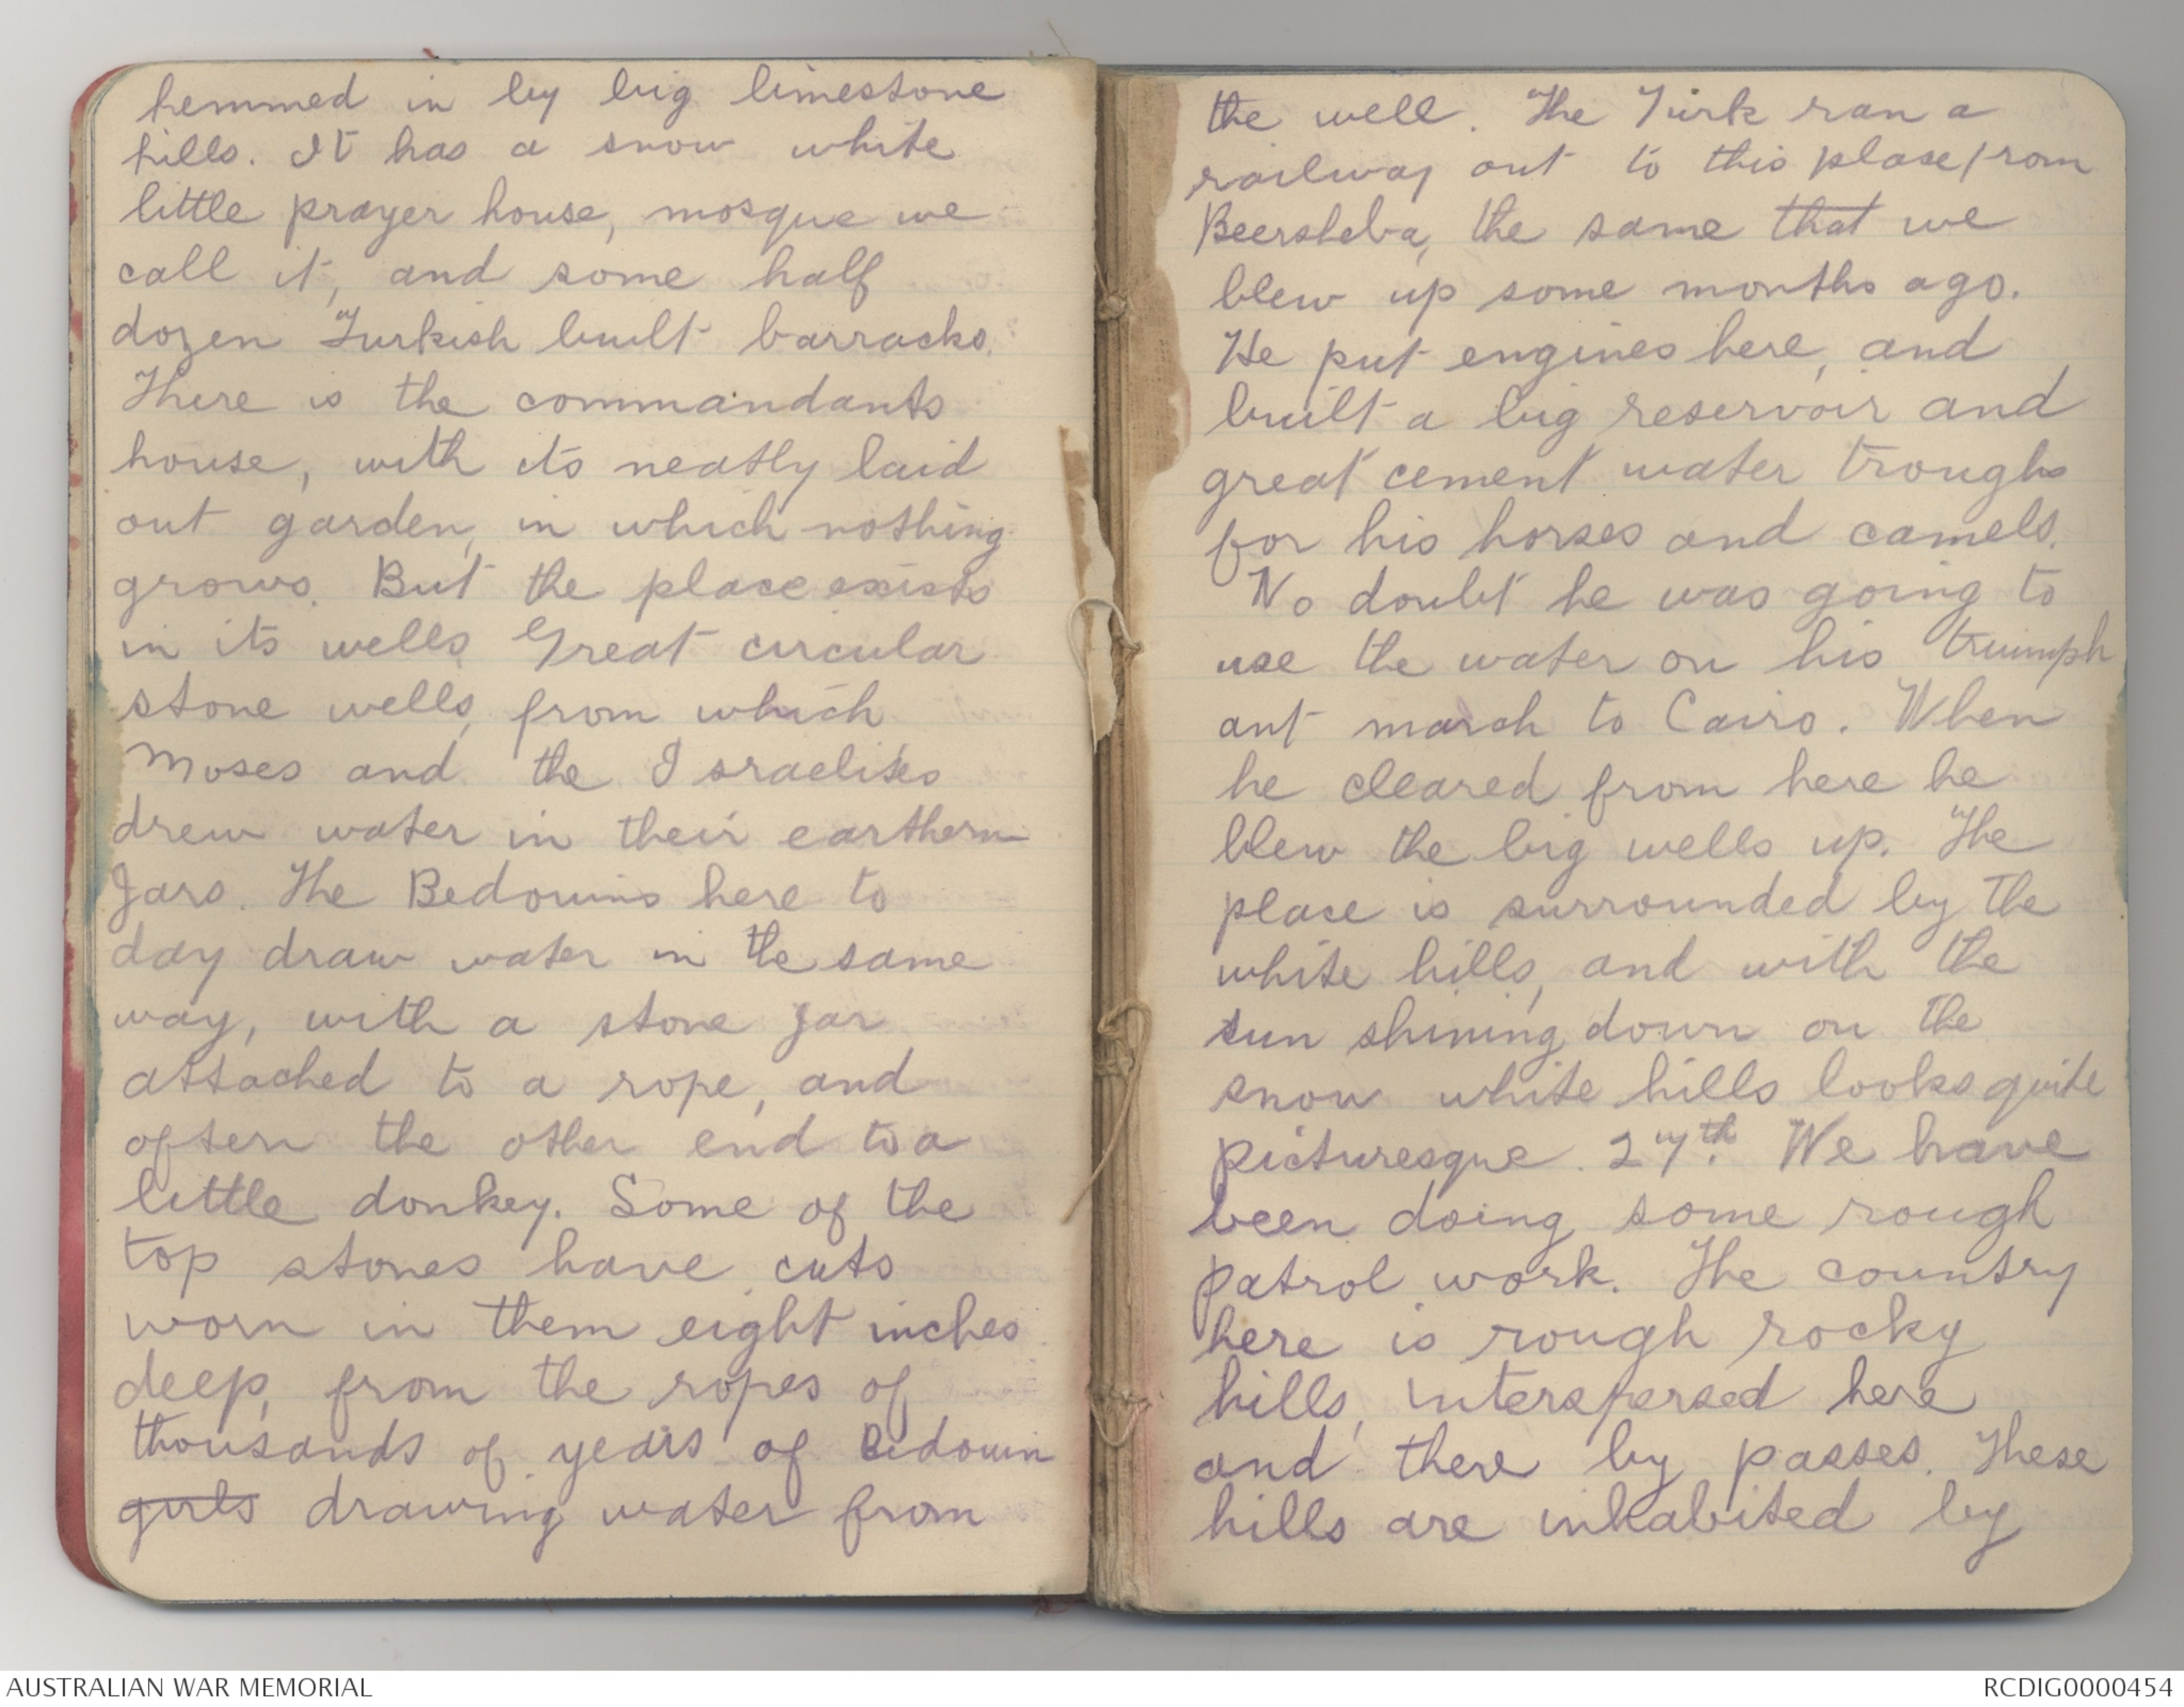 hemmed in by big limestone
hills. It has a snow white
little prayer house, mosque we
call it, and some half
dozen Turkish built barracks.
There is the commandants
house, with its neatly laid
out garden, in which nothing
grows. But the place exists
in its wells. Great circular
stone wells, from which
Moses and the Israelites
drew water in their earthern
Jars. The Bedouins here to
day draw water in the same
way, with a stone jar
attached to a rope, and
often the other end to a
little donkey. Some of the
top stones have cuts
worn in them eight inches
deep, from the ropes of
thousands of years of Bedouin
girls drawing water from
the well. The Turk ran a
railway out to this place from
Beersheba, the same that we
blew up some months ago.
He put engines here, and
built a big reservoir and
great cement water troughs
for his horses and camels.
No doubt he was going to
use the water on his triumph
ant march to Cairo. When
he cleared from here he
blew the big wells up. The
place is surrounded by the
white hills, and with the
sun shining down on the
snow white hills looks quite
picturesque. 27th. We have
been doing some rough
patrol work. The country
here is rough rocky
hills, interspersed here
and there by passes. These
hills are inhabited by
AUSTRALIAN WAR MEMORIAL
RCDIG0000454